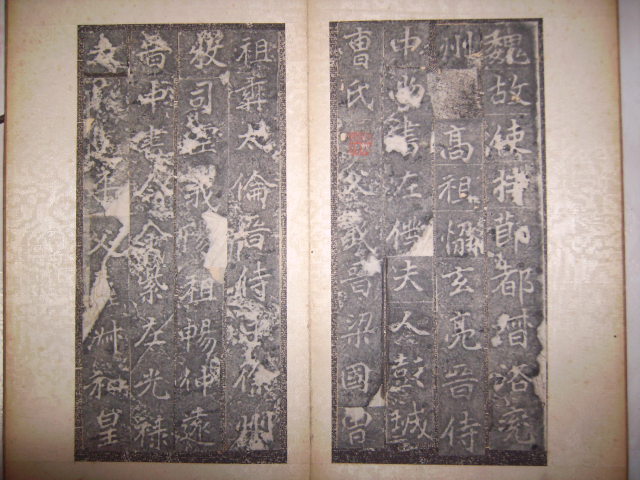 魏故使持節都督洛兗
州高祖懰玄亮晉侍
中尚書左僕夫人彭城
曹氏父羲晉梁國
祖彝太倫晉侍徐州
牧司空義陽祖暢仲遠
晉中書令金紫左光祿
父淋和皇